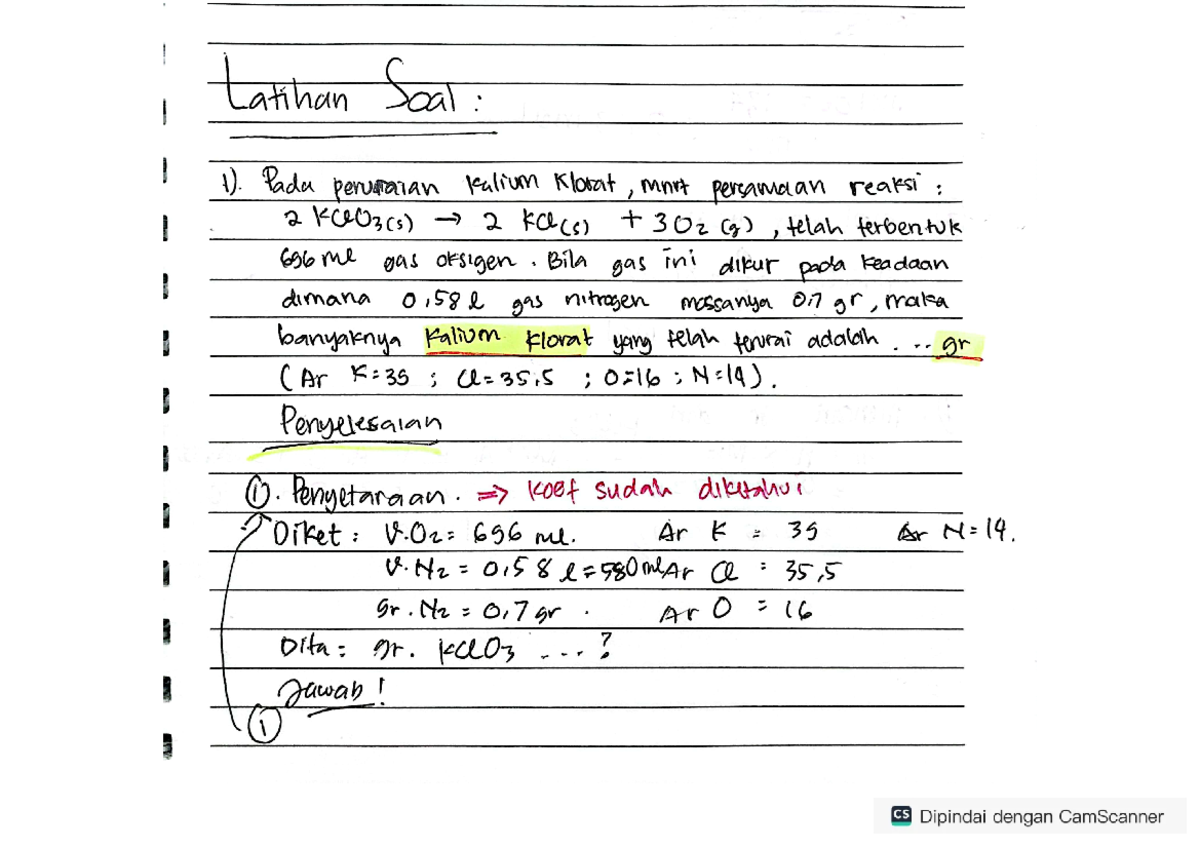 Latihan Soal :
1). Pada peruraian Kalium Klorat, mnrt persamaan reaksi :
2 KClO3(s) → 2 KCl(s) + 3 O2 (g), telah terbentuk
696 ml gas oksigen. Bila gas ini dikur pada keadaan
dimana 0,58 l gas nitrogen massanya 0,7 gr, maka
banyaknya Kalium Klorat yang telah terurai adalah ... gr
(Ar K=39 ; Cl=35,5 ; O=16 ; N=14).
Penyelesaian
①. Penyetaraan. ⇒ Koef sudah diketahui
Diket : V.O2 = 696 ml. Ar K = 39 Ar N=14.
V.N2 = 0,58 l = 580 ml Ar Cl = 35,5
gr.N2 = 0,7 gr. Ar O = 16
Dita : gr. KClO3 ...?
Jawab !
①
CS Dipindai dengan CamScanner